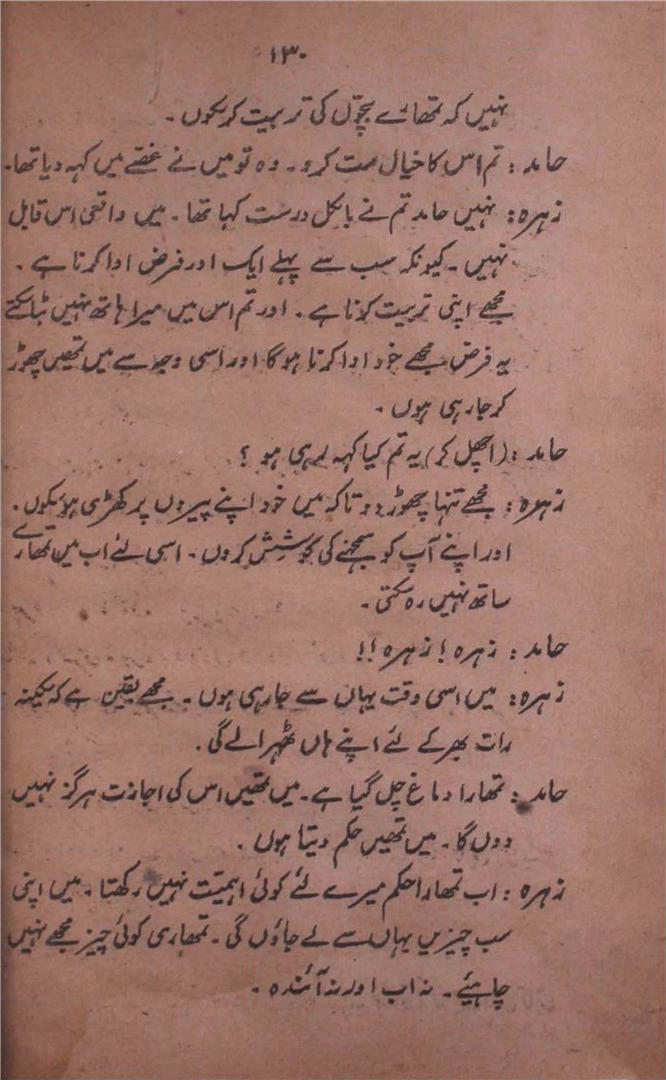 ۱۳۰
نہیں کہ تمھارے بچوں کی تربیت کرسکوں۔
حامد : تم اس کا خیال مت کرو۔ وہ تو میں نے غصّے میں کہہ دیا تھا۔
زہرہ : نہیں حامد تم نے بالکل درست کہا تھا۔ میں واقعی اس قابل
نہیں۔ کیونکہ سب سے پہلے ایک اور فرض ادا کرنا ہے۔
مجھے اپنی تربیت کرنا ہے۔ اور تم اس میں میرا ہاتھ نہیں بٹا سکتے
یہ فرض مجھے خود ادا کرنا ہوگا اور اسی وجہ سے میں تمھیں چھوڑ
کر جا رہی ہوں۔
حامد : (اچھل کر) یہ تم کیا کہہ رہی ہو ؟
زہرہ : مجھے تنہا چھوڑ دو تاکہ میں خود اپنے پیروں پر کھڑی ہو سکوں۔
اور اپنے آپ کو سمجھنے کی کوشش کروں۔ اسی لئے اب میں تمھارے
ساتھ نہیں رہ سکتی۔
حامد : زہرہ ! زہرہ !!
زہرہ : میں اسی وقت یہاں سے جا رہی ہوں۔ مجھے یقین ہے کہ سکینہ
رات بھر کے لئے اپنے ہاں ٹھہرا لے گی۔
حامد : تمھارا دماغ چل گیا ہے۔ میں تمھیں اس کی اجازت ہرگز نہیں
دوں گا۔ میں تمھیں حکم دیتا ہوں۔
زہرہ : اب تمھارا حکم میرے لئے کوئی اہمیّت نہیں رکھتا۔ میں اپنی
سب چیزیں یہاں سے لے جاؤں گی۔ تمھاری کوئی چیز مجھے نہیں
چاہیئے۔ نہ اب اور نہ آئندہ۔